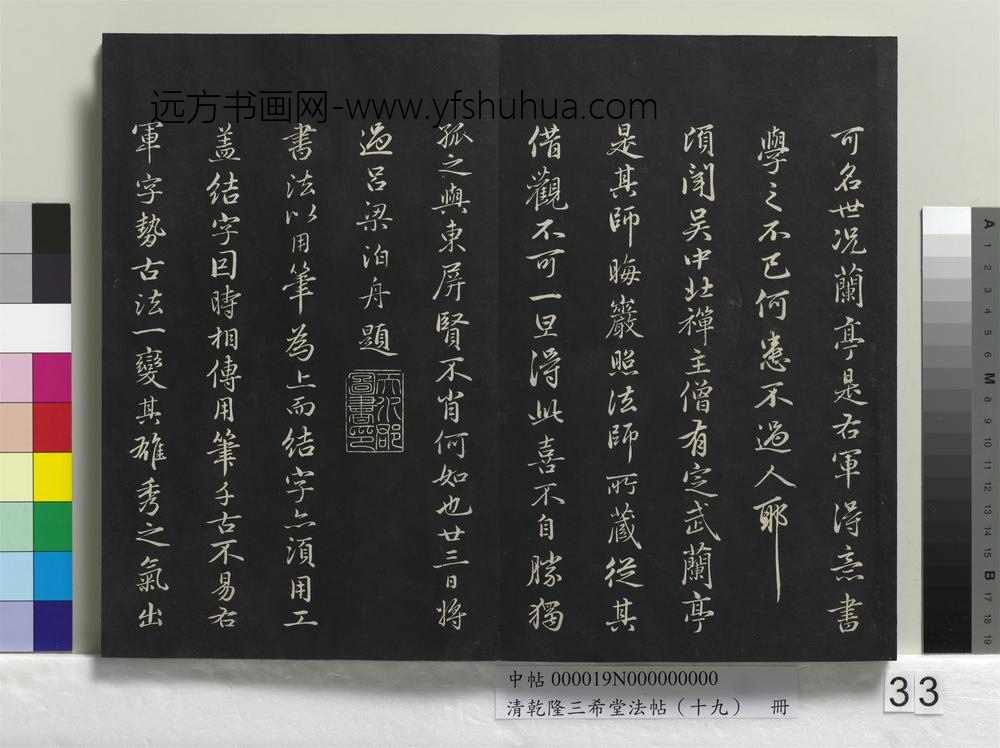 远方书画网-www.yfshuhua.com
可名世况蘭亭是右軍得意書
學之不已何患不過人耶
頃聞吴中北禪主僧有定武蘭亭
是其師晦巖照法師所藏從其
借觀不可一旦得此喜不自勝獨
孤之與東屏賢不肖何如也廿三日將
過吕梁泊舟題
天水郡圖書印
書法以用筆為上而結字亦須用工
盖結字因時相傳用筆千古不易右
軍字勢古法一變其雄秀之氣出
中帖 000019N000000000
清乾隆三希堂法帖（十九） 冊
33
A 1 2 3 4 5 6 M 8 9 10 11 12 13 14 15 B 17 18 19